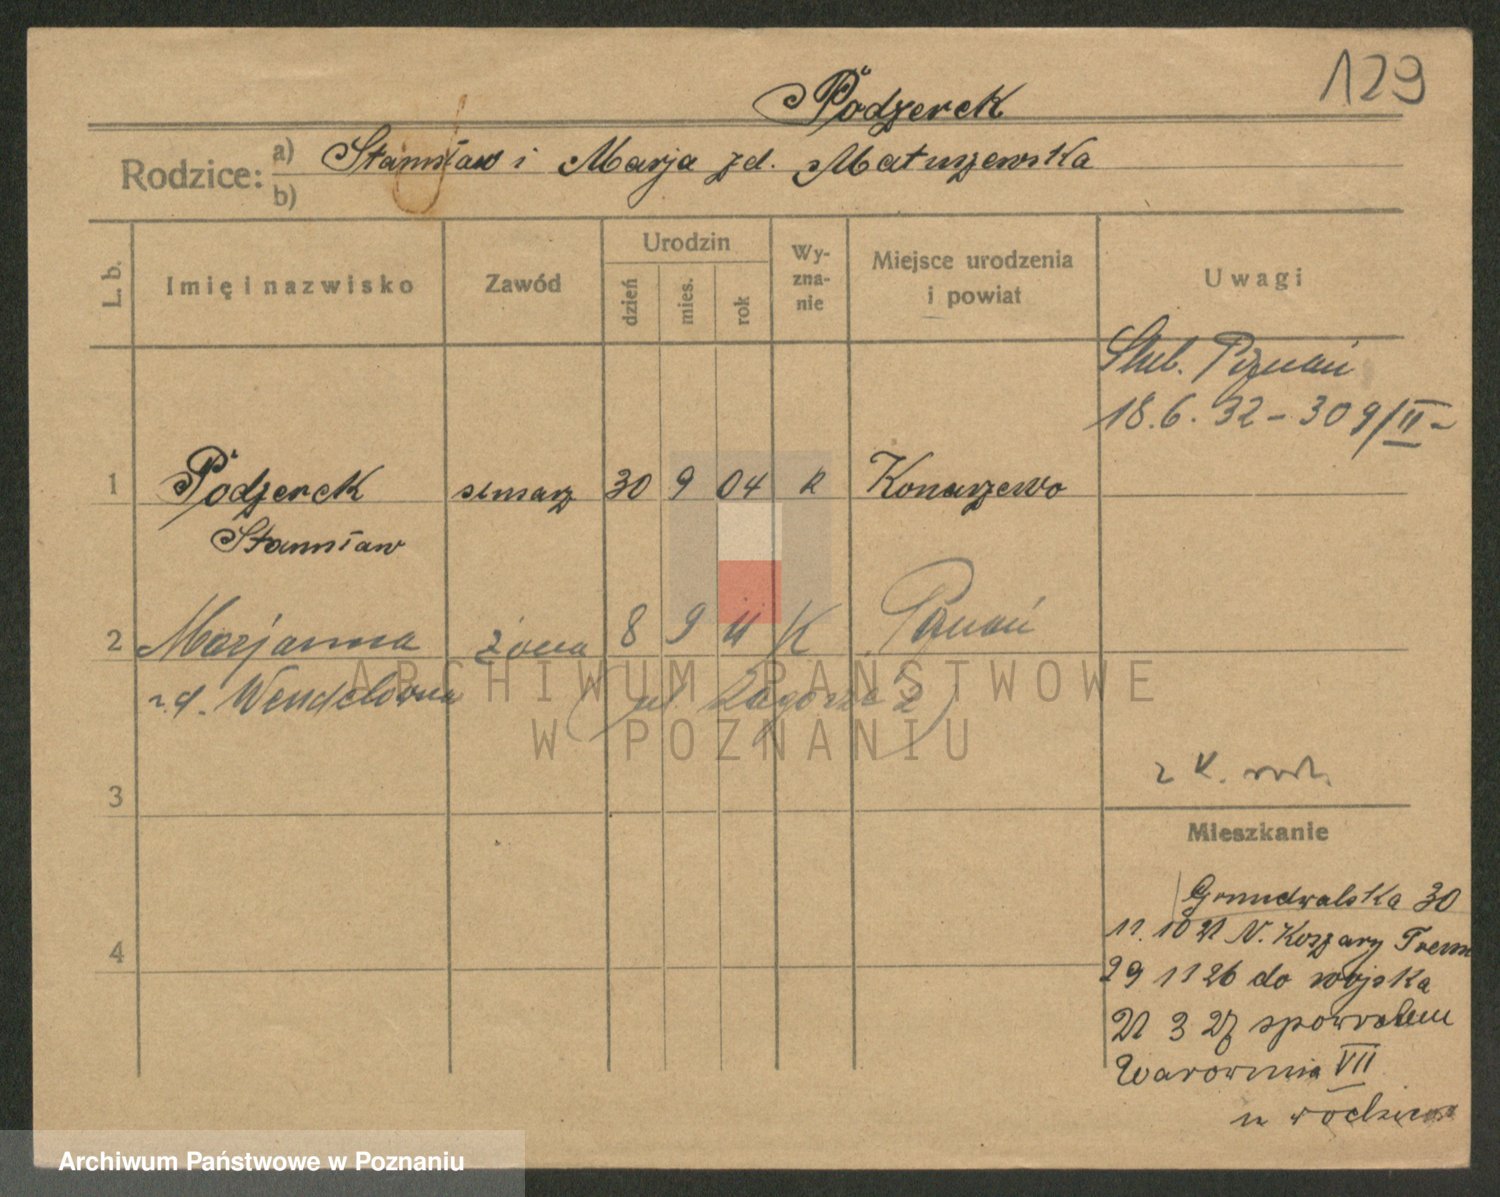 129
Podzerek
Rodzice: a) Stanisław i Marja zd. Matuszewska
b)
L. b. Imię i nazwisko Zawód Urodzin dzień mies. rok Wyznanie Miejsce urodzenia i powiat Uwagi
Ślub. Poznań
18.6.32 – 309/II –
1 Podzerek ślusarz 30 9 04 k Konarzewo
Stanisław
2 Marjanna żona 8 9 11 K Poznań
z d. Wendelówna (ul. Zagórze 2)
3
z K. rodz.
Mieszkanie
4
Grunwalska 30
11.10 21 N. Koszary
29 11 26 do wojska
21 3 27 spowrotem
Warownia VII
u rodziców
ARCHIWUM PAŃSTWOWE
W POZNANIU
Archiwum Państwowe w Poznaniu